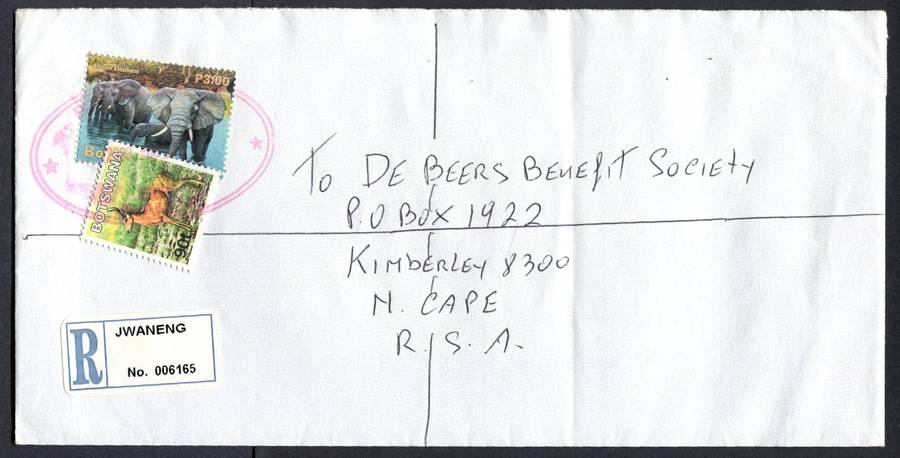 P3.00
Bo
BOTSWANA
90t
To DE BEERS BENEFIT SOCIETY
P.O BOX 1922
KIMBERLEY 8300
N. CAPE
R. S. A.
R
JWANENG
No. 006165